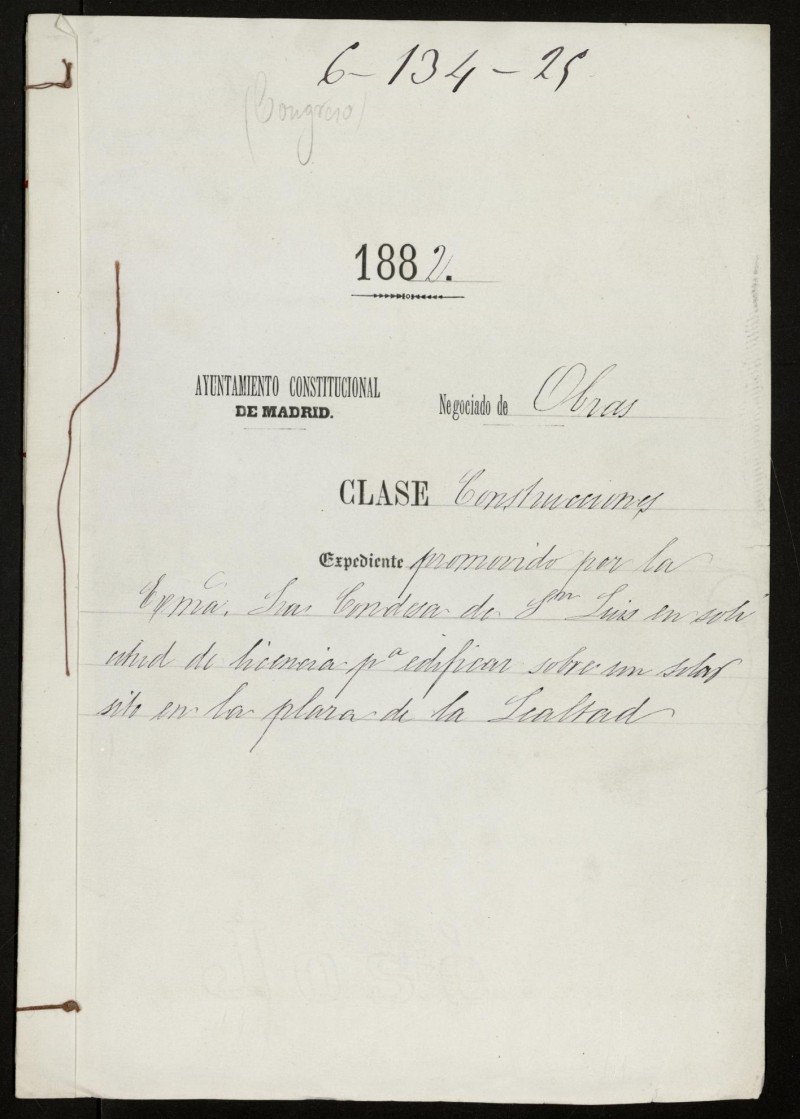 6-134-25
(Congreso)
1882.
AYUNTAMIENTO CONSTITUCIONAL
DE MADRID.
Negociado de Obras
CLASE Construcciones
Expediente promovido por la
Exma. Sra Condesa de Sn Luis en soli
citud de licencia pa edificar sobre un solar
sito en la plaza de la Lealtad